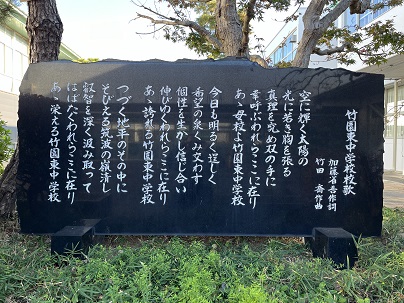 竹園東中学校校歌
加藤省吾作詞
竹田 斎作曲
空に輝く太陽の
光に若き胸を張る
真理を究め双の手に
幸呼ぶわれらここに在り
あゝ母校よ竹園東中学校
今日も明るく逞しく
希望の泉くみ交わす
個性を生かし信じ合い
伸びゆくわれらここに在り
あゝ誇れよ竹園東中学校
つづく地平のその中に
そびえる筑波の嶺清し
叡智を深く汲み取って
はばたくわれらここに在り
あゝ栄える竹園東中学校